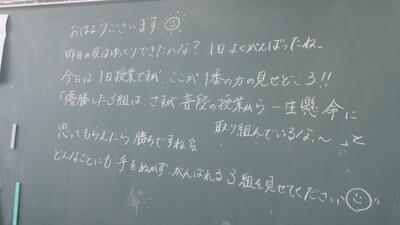 おはようございます
昨日の夜はゆっくりできたかな？1日よくがんばったね。
今日は1日授業ですが、ここが1番の力の見せどころ!!
「優勝した3組は、さすが普段の授業から一生懸命に
取り組んでいるな。～」と
思ってもらえたら勝ちですね
どんなことにも手をぬかず がんばれる3組を見せてください